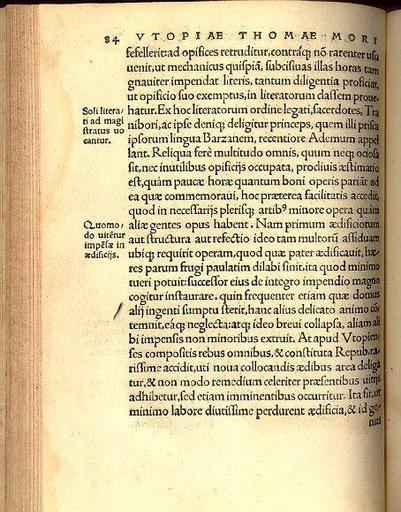 84 VTOPIAE THOMAE MORI
fefellerit: ad opifices retruditur, contraq; nō rarenter usu
uenit, ut mechanicus quispiā, subcisiuas illas horas tam
gnauiter impendat literis, tantum diligentia proficiat,
ut opificio suo exemptus, in literatorum classem proue-
Soli litera/
ti ad magi
stratus uo
cantur.
hatur. Ex hoc literatorum ordine legati, sacerdotes, Tra
nibori, ac ipse deniq; deligitur princeps, quem illi prisca
ipsorum lingua Barzanem, recentiore Ademum appel
lant. Reliqua ferè multitudo omnis, quum neq; ociosa
sit, nec inutilibus opificijs occupata, procliuis æstimatio
est, quàm paucæ horæ quantum boni operis pariāt ad
ea quæ commemoraui, hoc præterea facilitatis accedit,
quod in necessarijs plerisq; artibꝰ minore opera quàm
Quomo/
do uitētur
impēsæ in
ædificijs.
aliæ gentes opus habent. Nam primum ædificiorum
aut structura aut refectio ideo tam multorū assiduam
ubiq; requirit operam, quod quæ pater ædificauit, hæ-
res parum frugi paulatim dilabi sinit, ita quod minimo
tueri potuit: successor eius de integro impendio magno
cogitur instaurare. quin frequenter etiam quæ domus
alij ingenti sumptu stetit, hanc alius delicato animo cō
temnit, eaq; neglecta: atq; ideo breui collapsa, aliam ali
bi impensis non minoribus extruit. At apud Vtopien-
ses compositis rebus omnibus, & constituta Republra-
tissime accidit, uti noua collocandis ædibus area deliga
tur, & non modo remedium celeriter præsentibus uitijs
adhibetur, sed etiam imminentibus occurritur. Ita fit, ut
minimo labore diutissime perdurent ædificia, & id ge-
nus